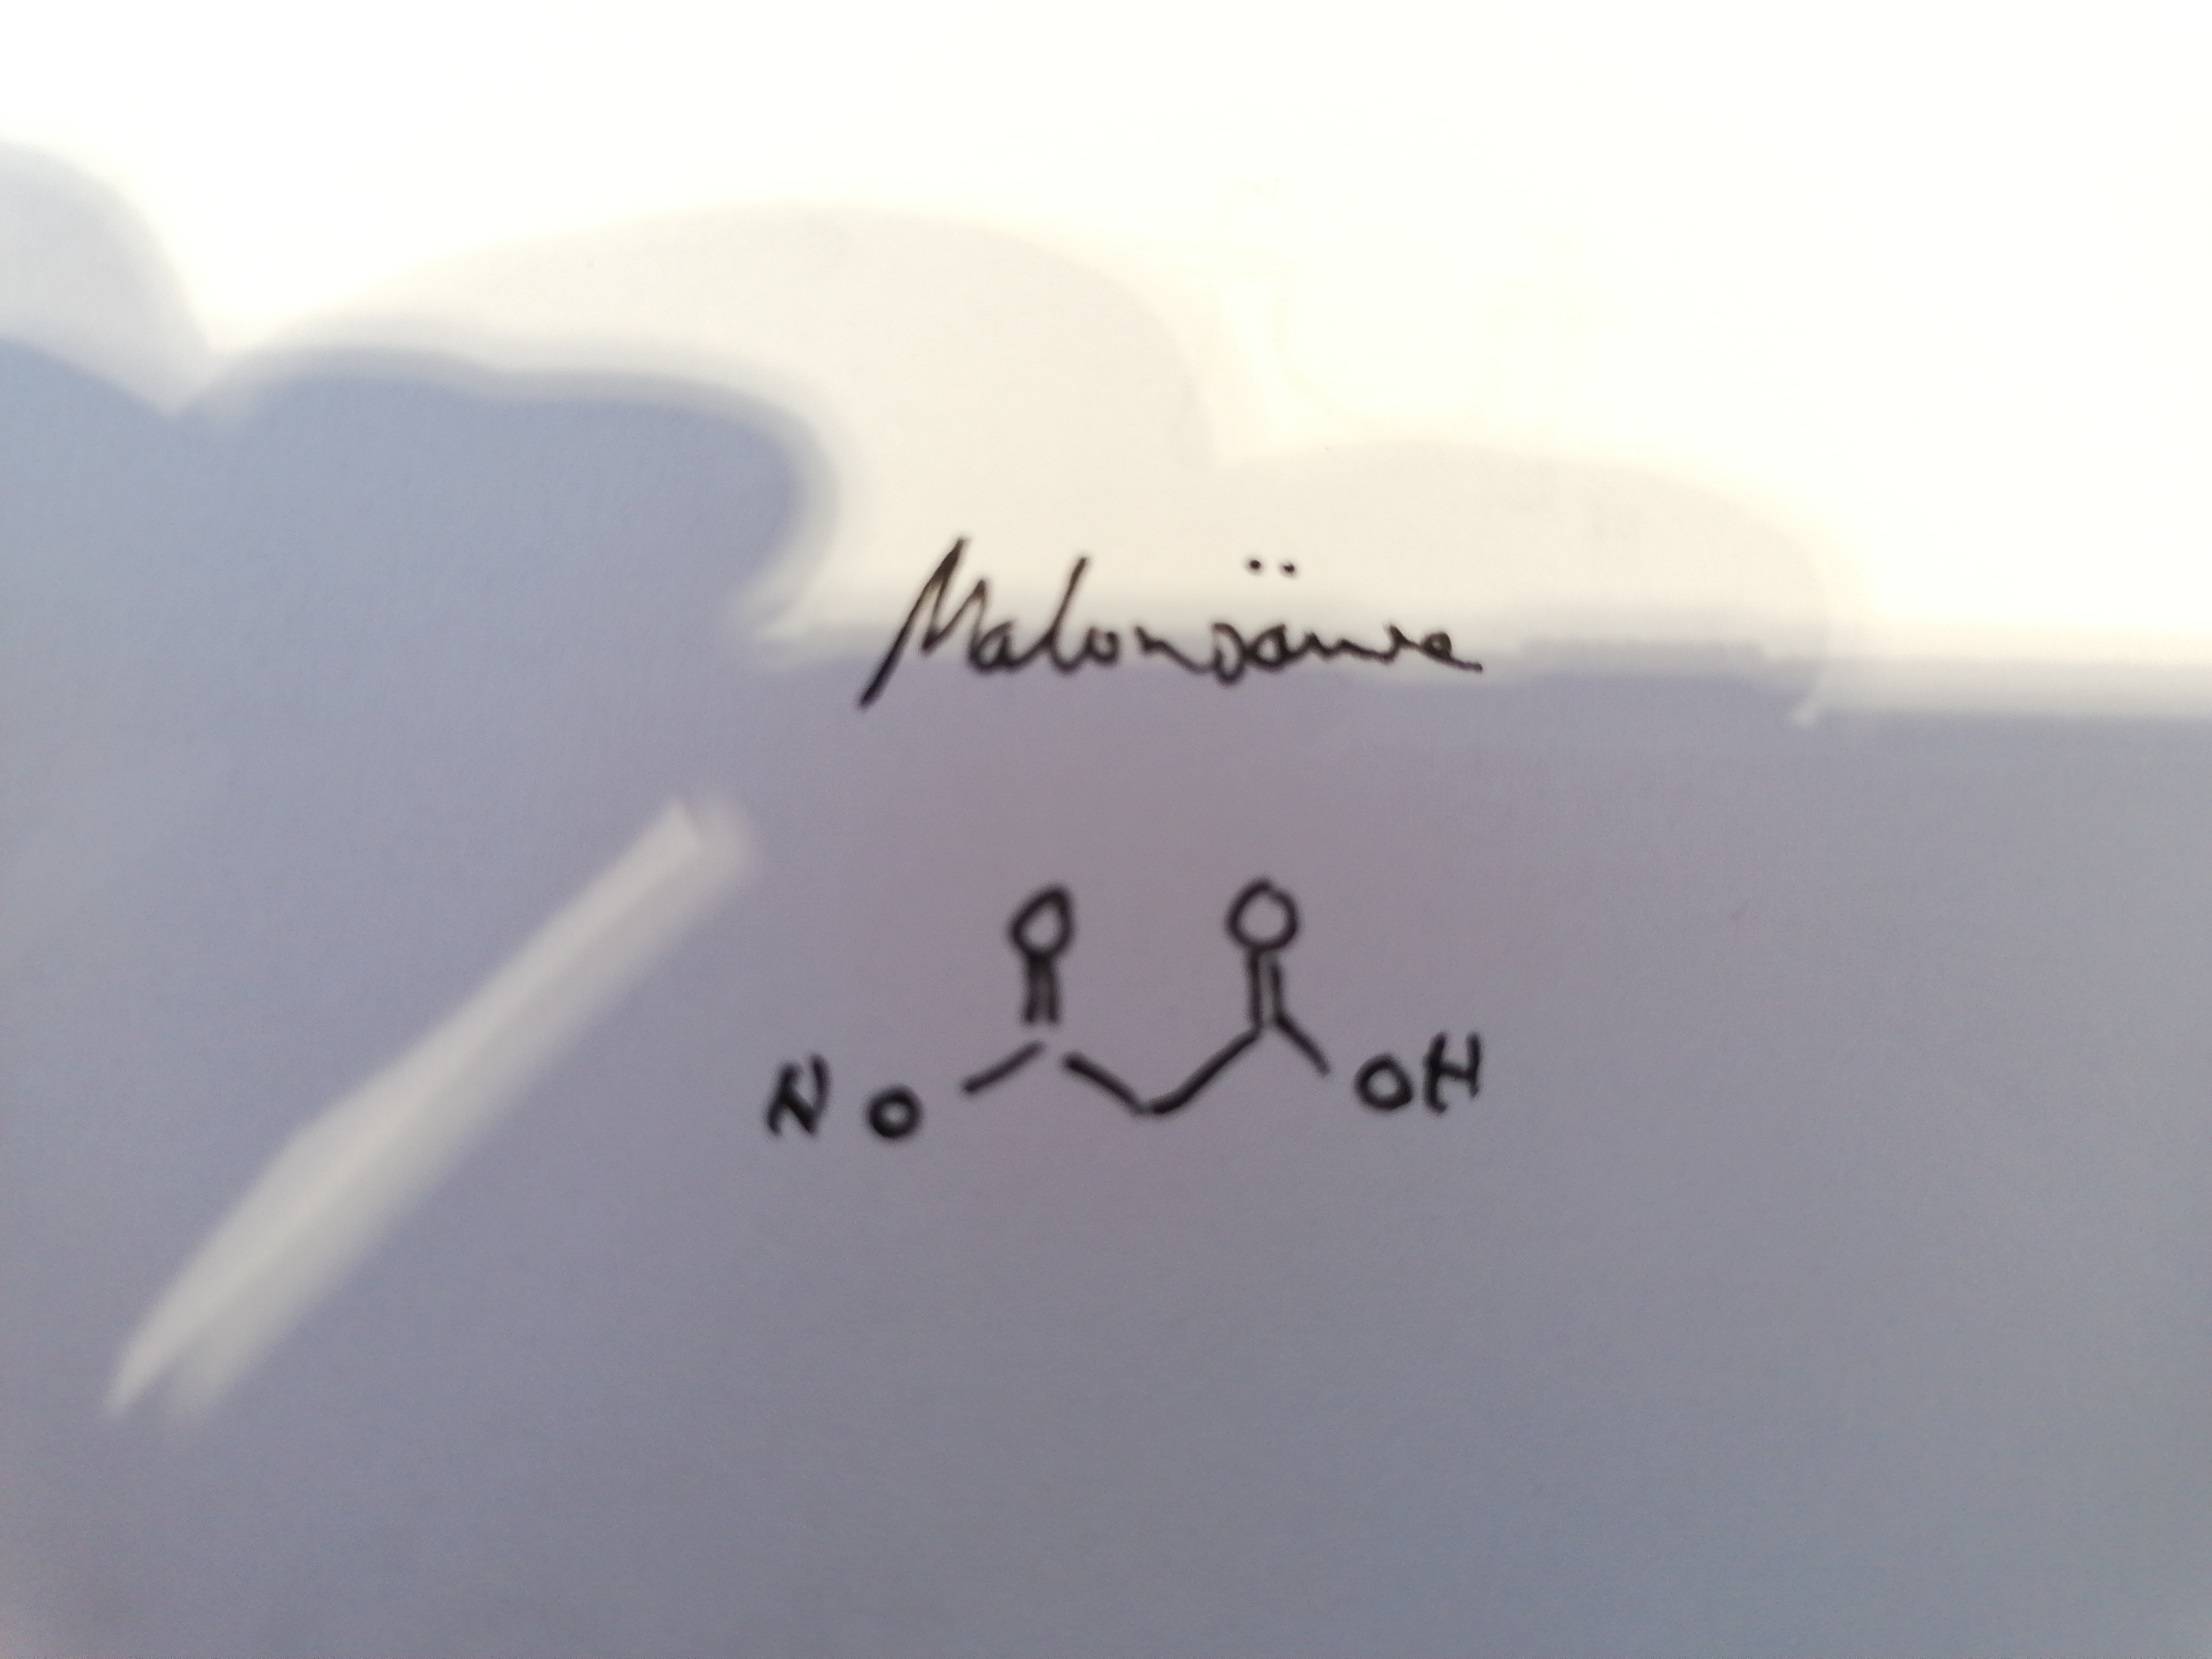 Malonsäure
O O
HO OH